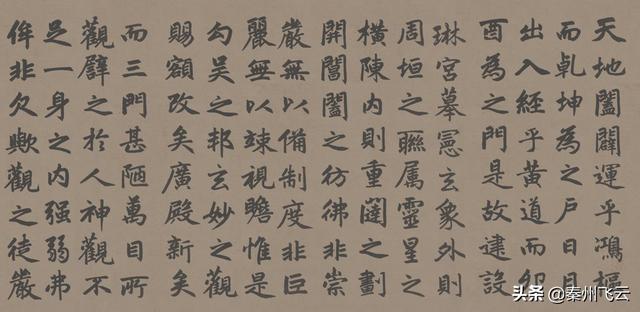 天地闔闢運乎鴻樞
而乹坤為之户日月
出入經乎黃道而卯
酉為之門是故建設
琳宮摹憲玄象外則
周垣之聮属靈星之
橫陳内則重闥之劃
開閶闔之彷彿非崇
嚴無以備制度非巨
麗無以竦視瞻惟是
勾吴之邦玄妙之觀
賜額改矣廣殿新矣
而三門甚陋萬目所
觀譬之於人神觀不
足一身之内强弱弗
侔非欠歟觀之徒嚴
头条 @秦州飞云